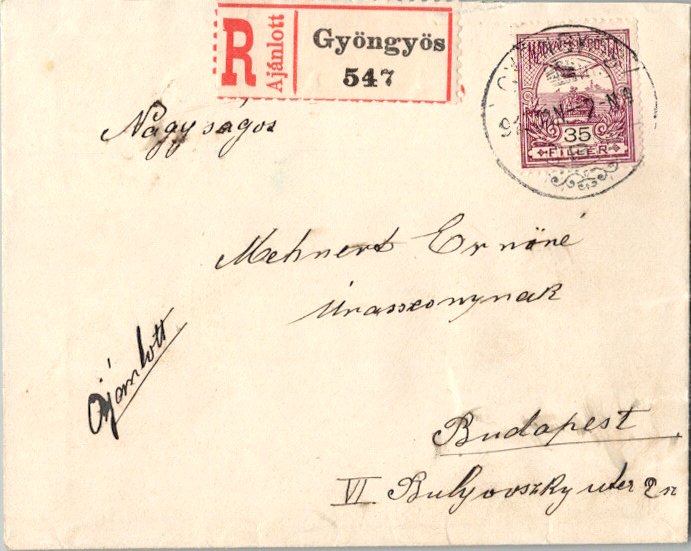 R Ajánlott Gyöngyös
547
MAGYAR KIR. POSTA
35
FILLER
Nagyságos
Mehnert Ernőné
Úrasszonynak
Ajánlott
Budapest
VI Bulyovszky utca 2